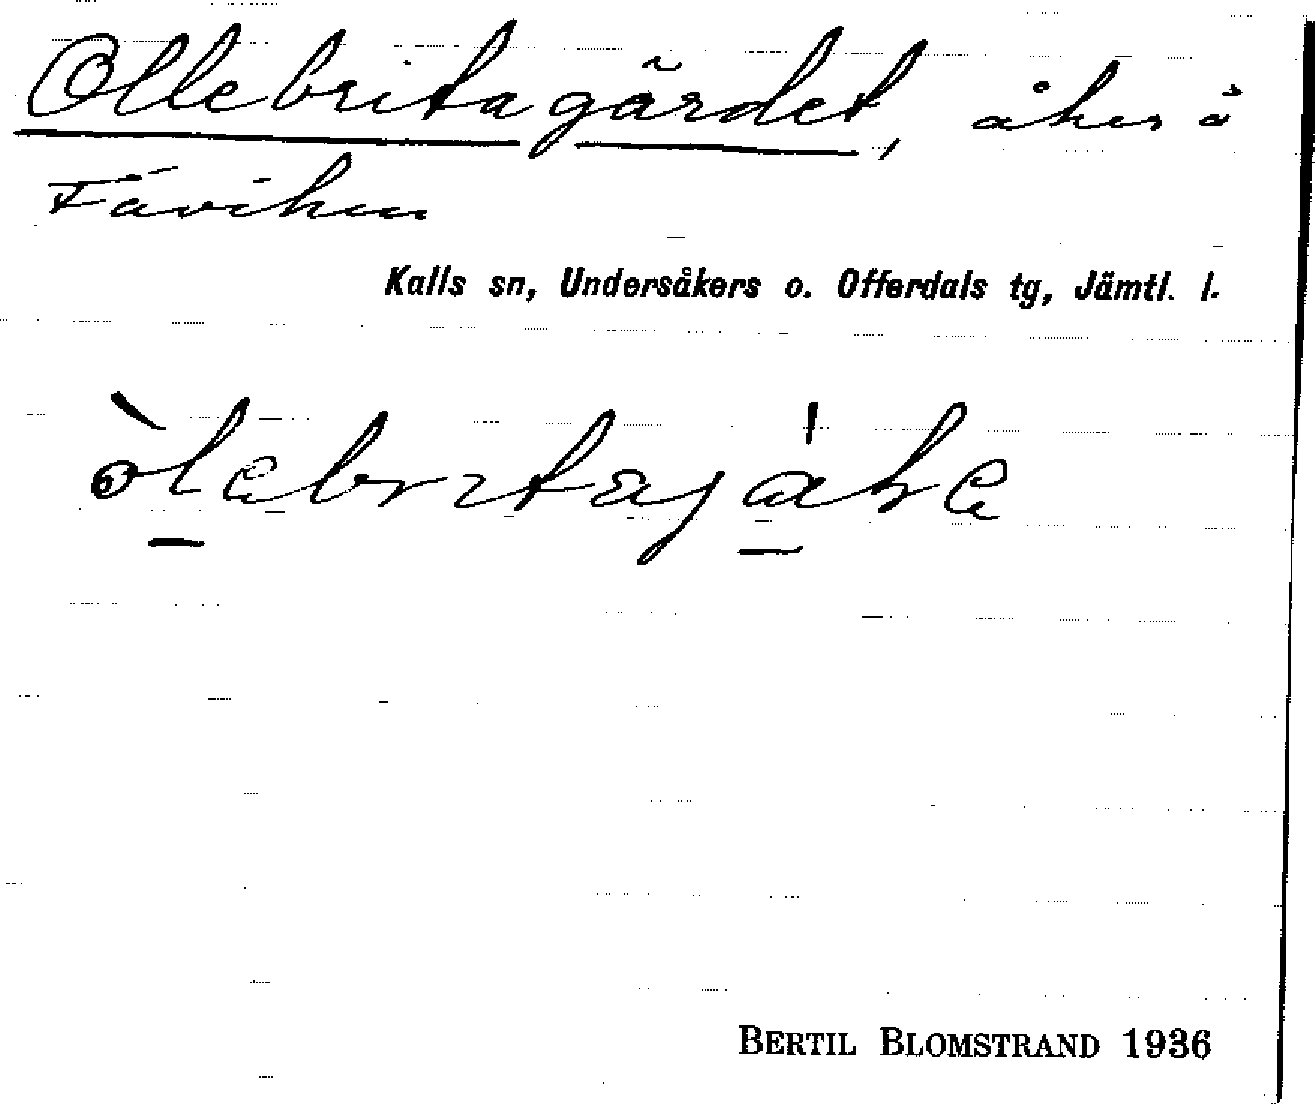 Ollebritagärdet, åker å
Fäviken
Kalls sn, Undersåkers o. Offerdals tg, Jämtl. l.
BERTIL BLOMSTRAND 1936